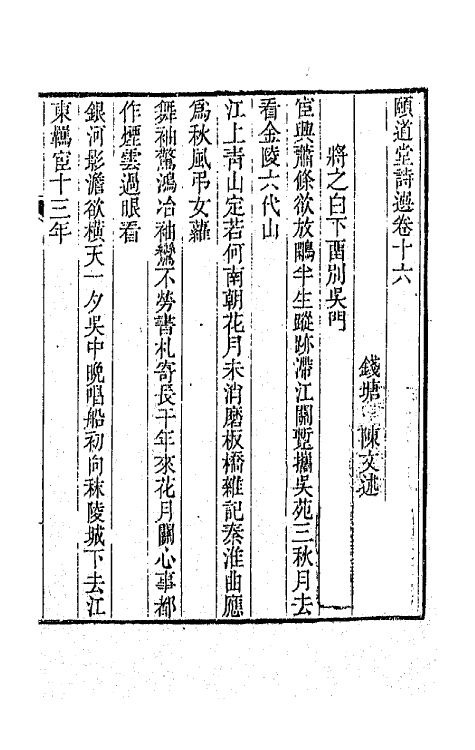 頤道堂詩選卷十六
錢塘 陳文述
將之白下畱別吳門
宦興蕭條欲放鷴半生蹤跡滯江關蹔攜吳苑三秋月去
看金陵六代山
江上靑山定若何南朝花月未消磨板橋雜記秦淮曲應
爲秋風弔女蘿
舞袖驚鴻冶袖鸞不勞書札寄長干年來花月關心事都
作煙雲過眼看
銀河影澹欲橫天一夕吳中晚唱船初向秣陵城下去江
東羈宦十三年